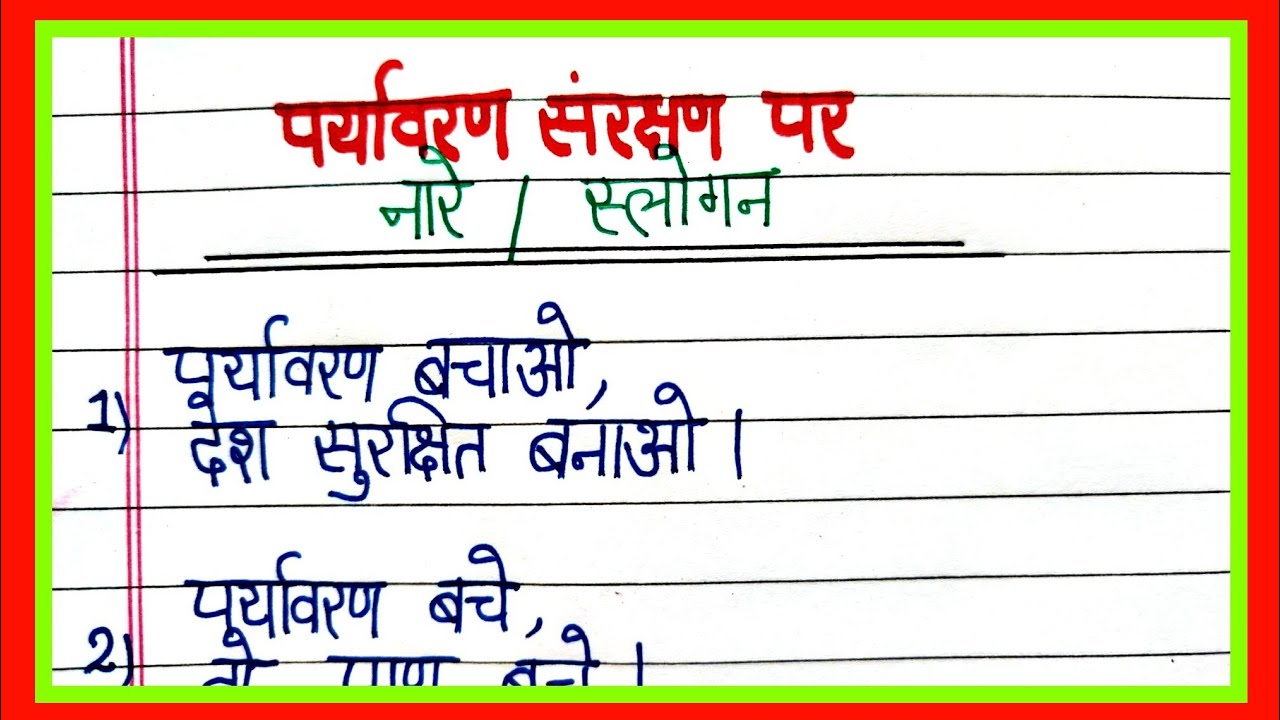 पर्यावरण संरक्षण पर
नारे / स्लोगन
1) पर्यावरण बचाओ,
देश सुरक्षित बनाओ।
पर्यावरण बचे,
2) तो प्राण बचे।